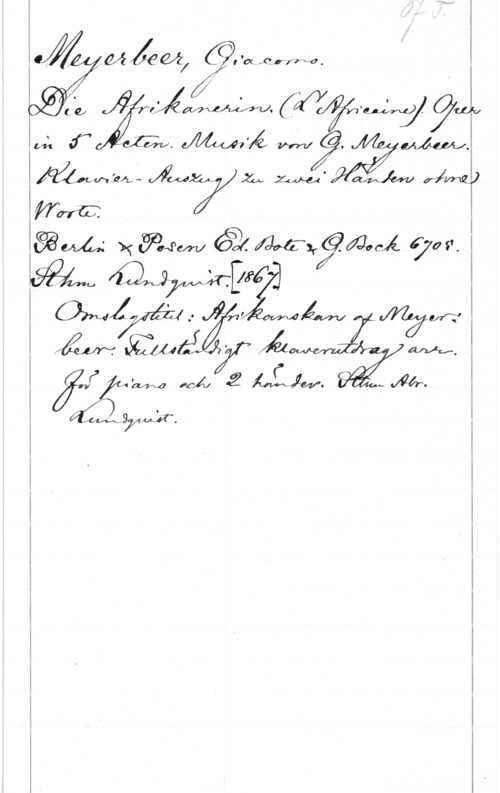 Meyerbeer, Giacomo.
Die Afrikanerin. (L'Africaine). Oper
in 5 Acten. Musik von G. Meyerbeer.
Klavier-Auszug zu zwei Händen ohne
Worte.
Berlin & Posen Ed. Bote & G. Bock 6705.
Sthm Lundquist. [1867]
Omslagstitel: Afrikanskan af Meyer-
beer. Fullständigt klaverutdrag arr.
för piano och 2 händer. Sthm Abr.
Lundquist.